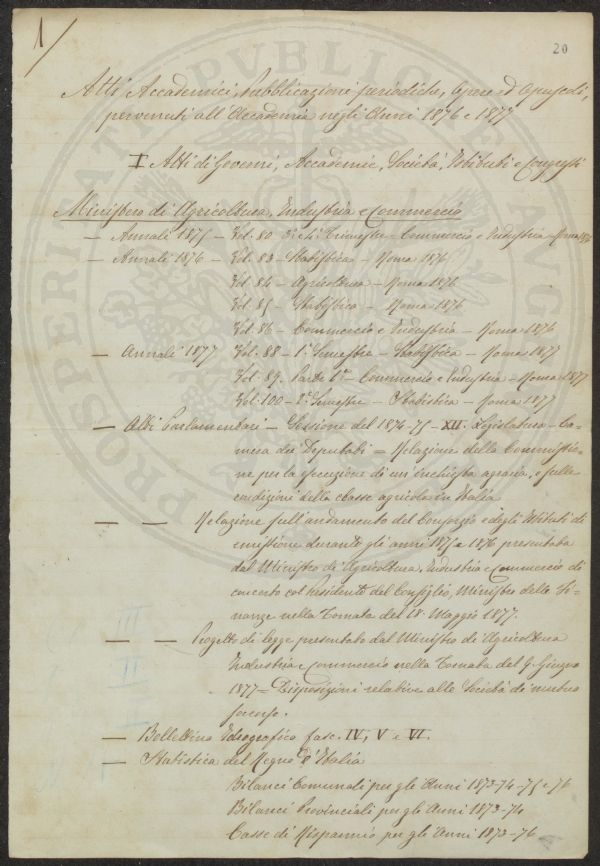 1/
20
Atti Accademici, Pubblicazioni periodiche, Opere ed Opuscoli,
pervenuti all'Accademia negli Anni 1876 e 1877
I Atti di Governi, Accademie, Società, Istituti e Congressi
Ministero di Agricoltura, Industria e Commercio
— Annali 1875 — Vol. 80 3° e 4° Trimestre — Commercio e Industria — Roma 1876
— Annali 1876 — Vol. 83 — Statistica — Roma 1876
Vol. 84 — Agricoltura — Roma 1876
Vol. 85 — Statistica — Roma 1876
Vol. 86 — Commercio e Industria — Roma 1876
— Annali 1877 Vol. 88 — 1° Semestre — Statistica — Roma 1877
Vol. 89. Parte 1a — Commercio e Industria — Roma 1877
Vol. 100 — 2° Semestre — Statistica — Roma 1877
— Atti Parlamentari — Sessione del 1874-75 — XII. Legislatura — Ca-
mera dei Deputati = Relazione della Commissio-
ne per la esecuzione di un'inchiesta agraria, e sulle
condizioni della classe agricola in Italia
— — Relazione sull'andamento del Consorzio e degli Istituti di
emissione durante gli anni 1875 e 1876 presentata
dal Ministro di Agricoltura, Industria e Commercio di
concerto col Presidente del Consiglio, Ministro delle Fi-
nanze nella Tornata del 18 Maggio 1877.
— — Progetto di legge presentato dal Ministro di Agricoltura
Industria e Commercio nella Tornata del 9 Giugno
1877 = Disposizioni relative alle Società di mutuo
soccorso.
— Bollettino Idrografico fasc. IV, V e VI.
— Statistica del Regno d'Italia
Bilanci Comunali per gli Anni 1873-74-75 e 76
Bilanci Provinciali per gli Anni 1873-74
Casse di Risparmio per gli Anni 1873-76
PROSPERITATI PUBLICAE AUGE
III
II
I